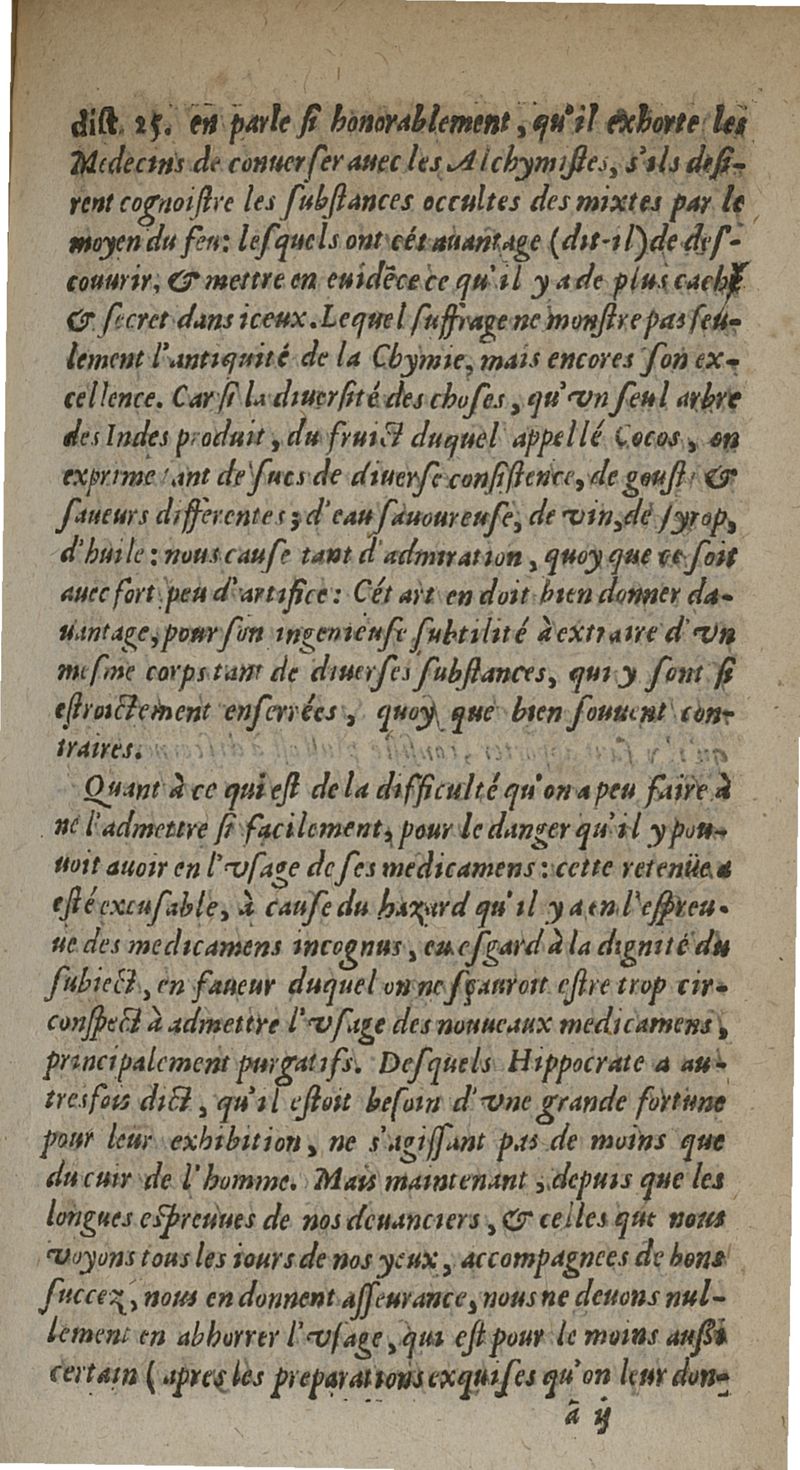 dist. 25. en parle si honorablement, qu'il exhorte les
Medecins de conuerser auec les Alchymistes, s'ils desi-
rent cognoistre les substances occultes des mixtes par le
moyen du feu: lesquels ont cét auantage (dit-il) de des-
couurir, & mettre en euidẽce ce qu'il y a de plus caché
& secret dans iceux. Lequel suffrage ne monstre pas seu-
lement l'antiquité de la Chymie, mais encores son ex-
cellence. Car si la diuersité des choses, qu'vn seul arbre
des Indes produit, du fruict duquel appellé Cocos, on
exprime tant de sucs de diuerse consistence, de goust, &
saueurs differentes; d'eau sauoureuse, de vin, de syrop,
d'huile: nous cause tant d'admiration, quoy que ce soit
auec fort peu d'artifice: Cét art en doit bien donner da-
uantage, pour son ingenieuse subtilité à extraire d'vn
mesme corps tant de diuerses substances, qui y sont si
estroictement enserrées, quoy que bien souuent con-
traires.
Quant à ce qui est de la difficulté qu'on a peu faire à
ne l'admettre si facilement, pour le danger qu'il y pou-
uoit auoir en l'vsage de ses medicamens: cette retenüe a
esté excusable, à cause du hazard qu'il y a en l'espreu-
ue des medicamens incognus, eu esgard à la dignité du
subiect, en faueur duquel on ne sçauroit estre trop cir-
conspect à admettre l'vsage des nouueaux medicamens,
principalement purgatifs. Desquels Hippocrate a au-
tresfois dict, qu'il estoit besoin d'vne grande fortune
pour leur exhibition, ne s'agissant pas de moins que
du cuir de l'homme. Mais maintenant, depuis que les
longues espreuues de nos deuanciers, & celles que nous
voyons tous les iours de nos yeux, accompagnees de bons
succez, nous en donnent asseurance, nous ne deuons nul-
lement en abhorrer l'vsage, qui est pour le moins aussi
certain (apres les preparations exquises qu'on leur don-
ã ij